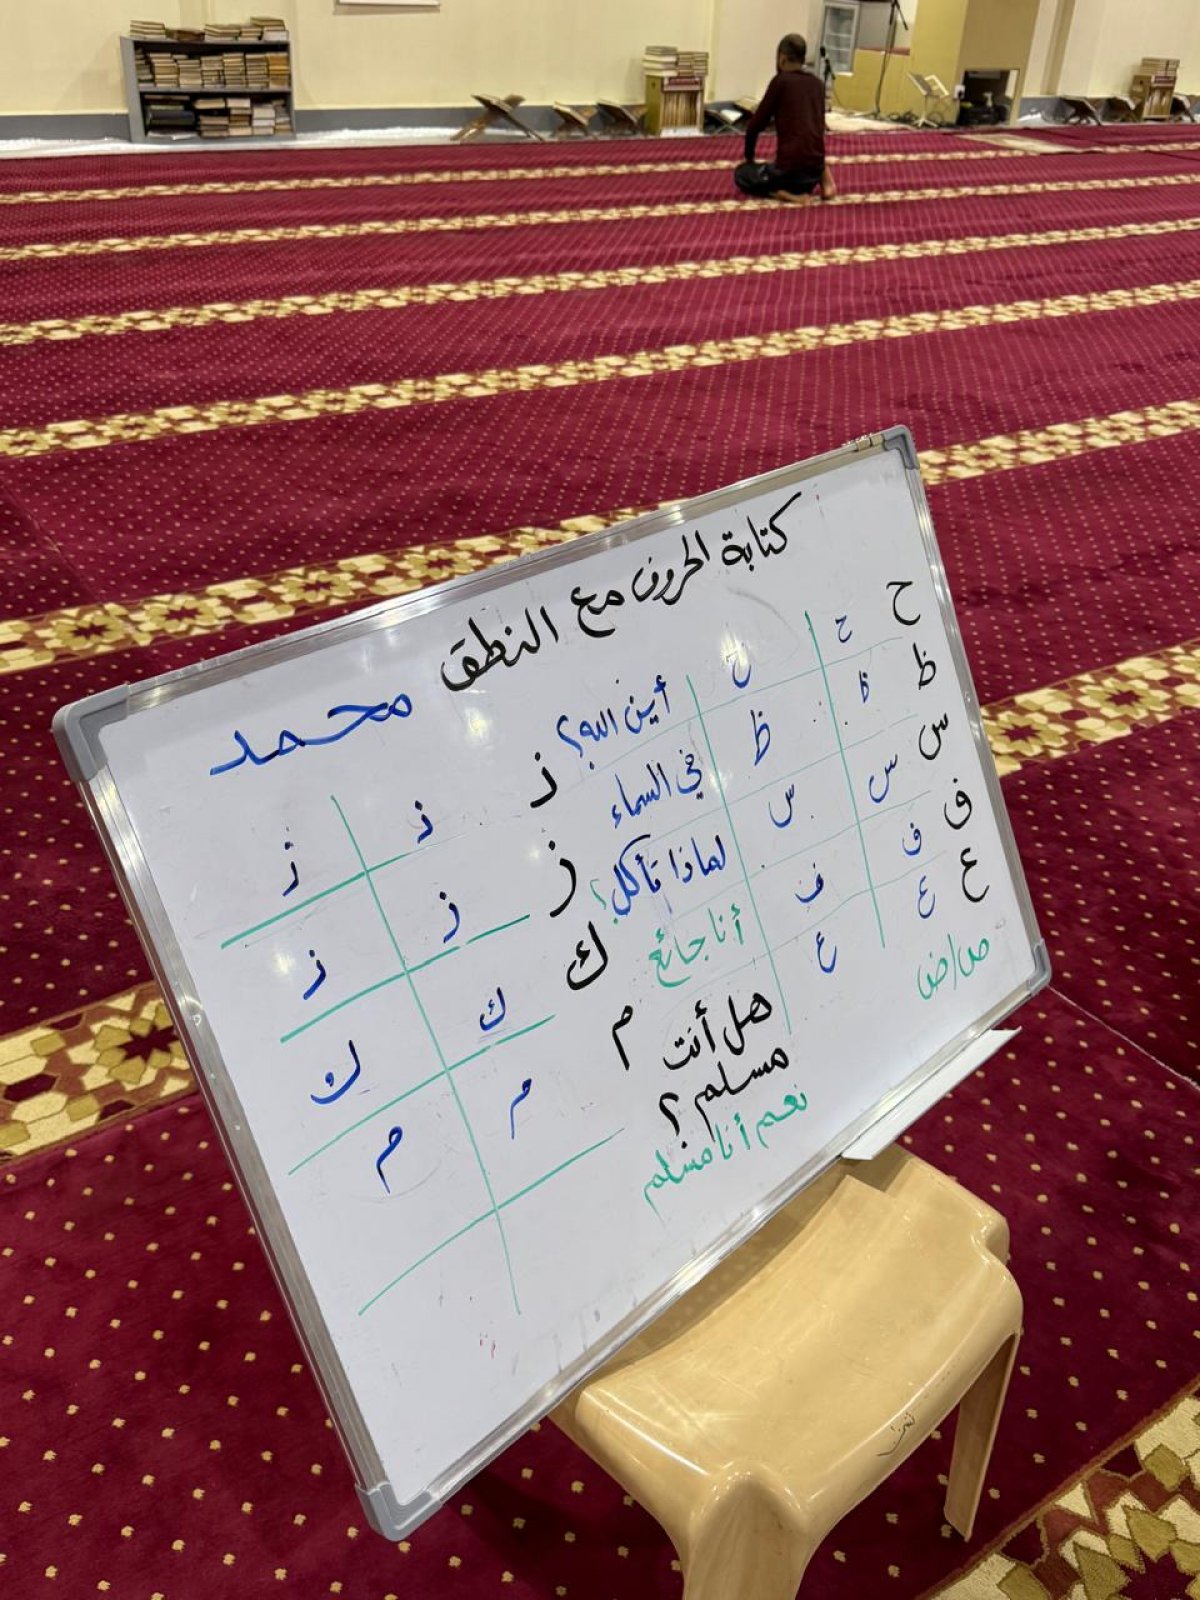 كتابة الحروف مع النطق
محمد
ح ح ح
ظ ظ ظ
س س س
ف ف ف
ع ع ع
ص/ض
أين الله؟
في السماء
لماذا تأكل؟
أنا جائع
هل أنت
مسلم؟
نعم أنا مسلم
ز ز ز
ك ك ك
م م م